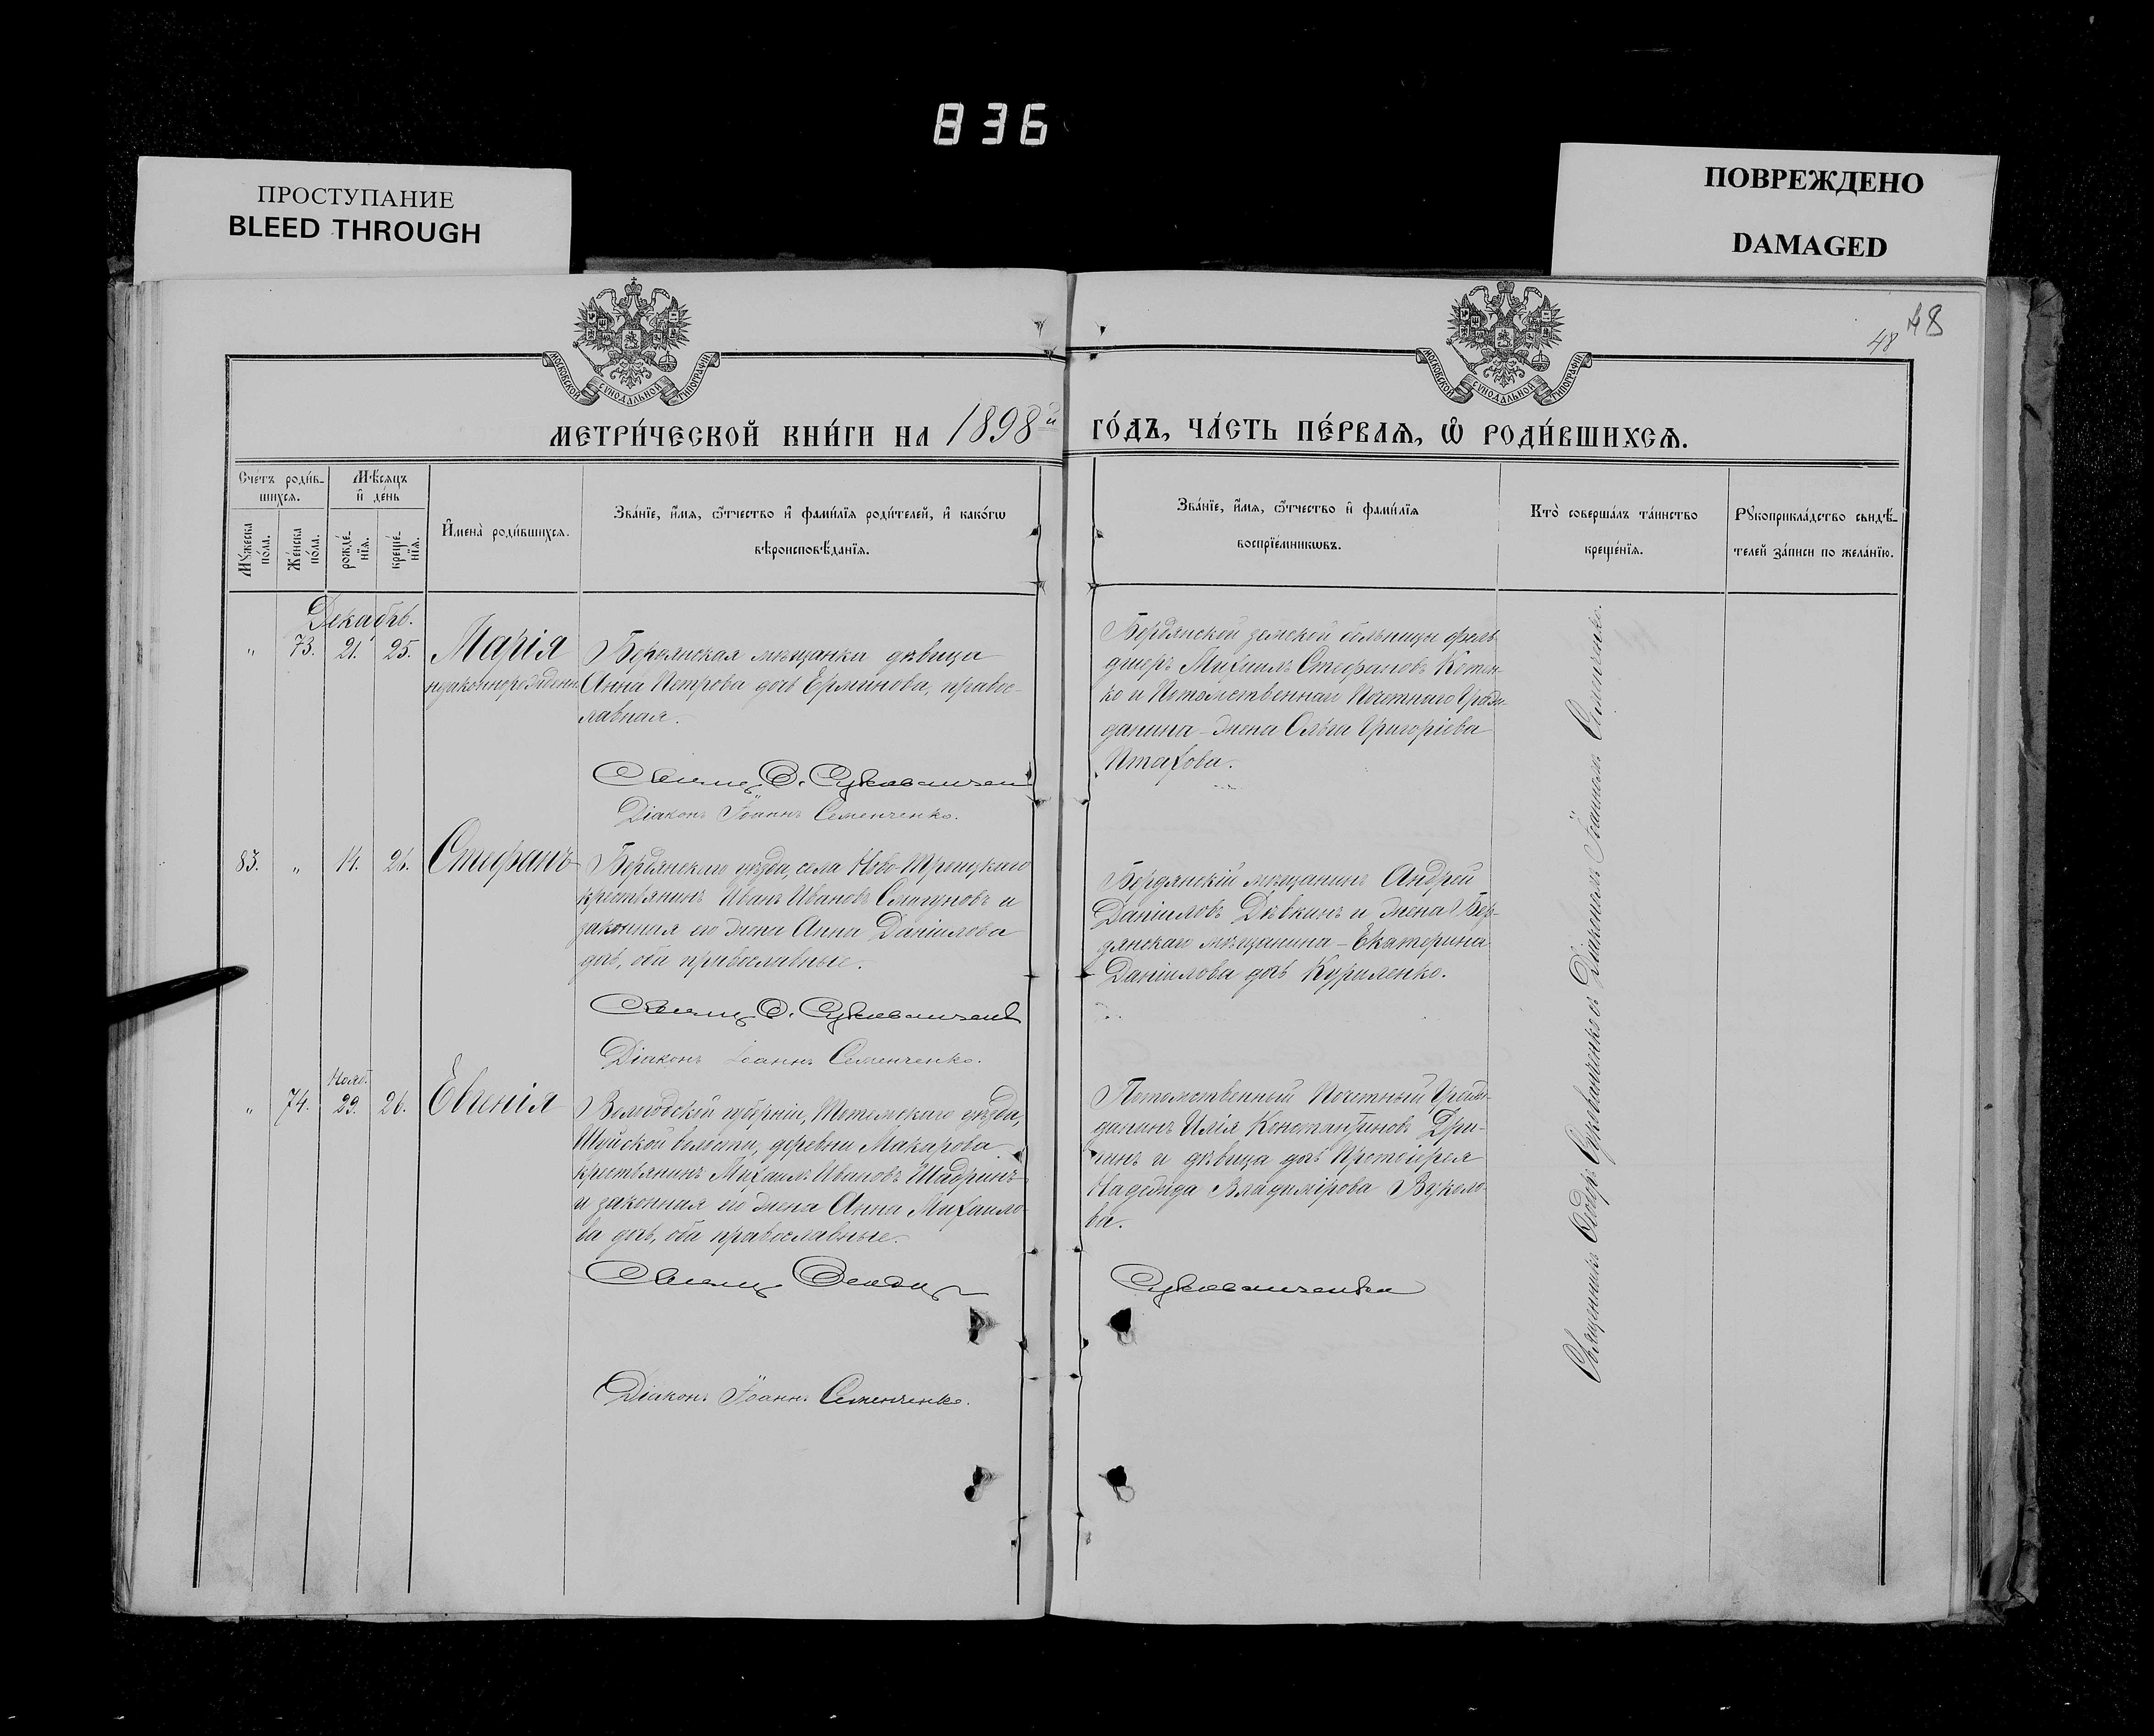 836
ПРОСТУПАНИЕ
BLEED THROUGH
ПОВРЕЖДЕНО
DAMAGED
48
48
МОСКОВСКОЙ СѴНОДАЛЬНОЙ ТИПОГРАФІИ
МОСКОВСКОЙ СѴНОДАЛЬНОЙ ТИПОГРАФІИ
МЕТРИ́ЧЕСКОЙ КНИ́ГИ НА 1898й ГО́ДЪ, ЧА́СТЬ ПЕ́РВАѦ, Ѡ҆ РОДИ́ВШИХСѦ.
Сче́тъ роди́в-
шихсѧ.
Мꙋ́жеска по́ла.
Же́нска по́ла.
Мѣ́сѧцъ
и҆ де́нь
рожде́-нїѧ.
креще́-нїѧ.
И҆мена̀ роди́вшихсѧ.
Зва́нїе, и҆́мѧ, ѻ҆́тчество и҆ фами́лїѧ роди́телей, и҆ како́гѡ
вѣроисповѣ́данїѧ.
Зва́нїе, и҆́мѧ, ѻ҆́тчество и҆ фами́лїѧ
воспрїе́мникѡвъ.
Кто̀ соверша́лъ та́инство
креще́нїѧ.
Рꙋкоприкла́дство свидѣ́-
телей за́писи по жела́нїю.
Декабрь.
" 73. 21. 25. Марія
незаконнорожденн.
Бердянская мѣщанка дѣвица
Анна Петрова дочь Ерминова, правос-
лавная.
Священ. Ѳ. Сукованченко
Діаконъ Іоаннъ Семенченко.
Бердянской земской больницы фель-
дшеръ Михаилъ Стефановъ Котен-
ко и Потомственнаго Почетнаго Граж-
данина жена Ольга Григоріева
Птахова.
83. " 14. 26. Стефанъ
Бердянскаго уѣзда, села Ново-Троицкаго
крестьянинъ Иванъ Ивановъ Смагуновъ и
законная его жена Анна Даніилова
дочь, оба православные.
Священ. Ѳ. Сукованченко
Діаконъ Іоаннъ Семенченко.
Бердянскій мѣщанинъ Андрей
Даніиловъ Дѣвкинъ и жена Бер-
дянскаго мѣщанина - Екатерина
Даніилова дочь Куриленко.
Нояб.
" 74. 29. 26. Евгенія
Вологодской губерніи, Тотемскаго уѣзда,
Шуйской волости, деревни Макарова
крестьянинъ Михаилъ Ивановъ Шадринъ
и законная его жена Анна Михаило-
ва дочь, оба православные.
Священ. Ѳеодор Сукованченко
Діаконъ Іоаннъ Семенченко.
Потомственный Почетный Граж-
данинъ Илія Константиновъ Дри-
чинъ и дѣвица дочь Протоіерея
Надежда Владимірова Вуколо-
ва.
Священникъ Ѳеодоръ Сукованченко съ Діакономъ Іоанномъ Семенченко.